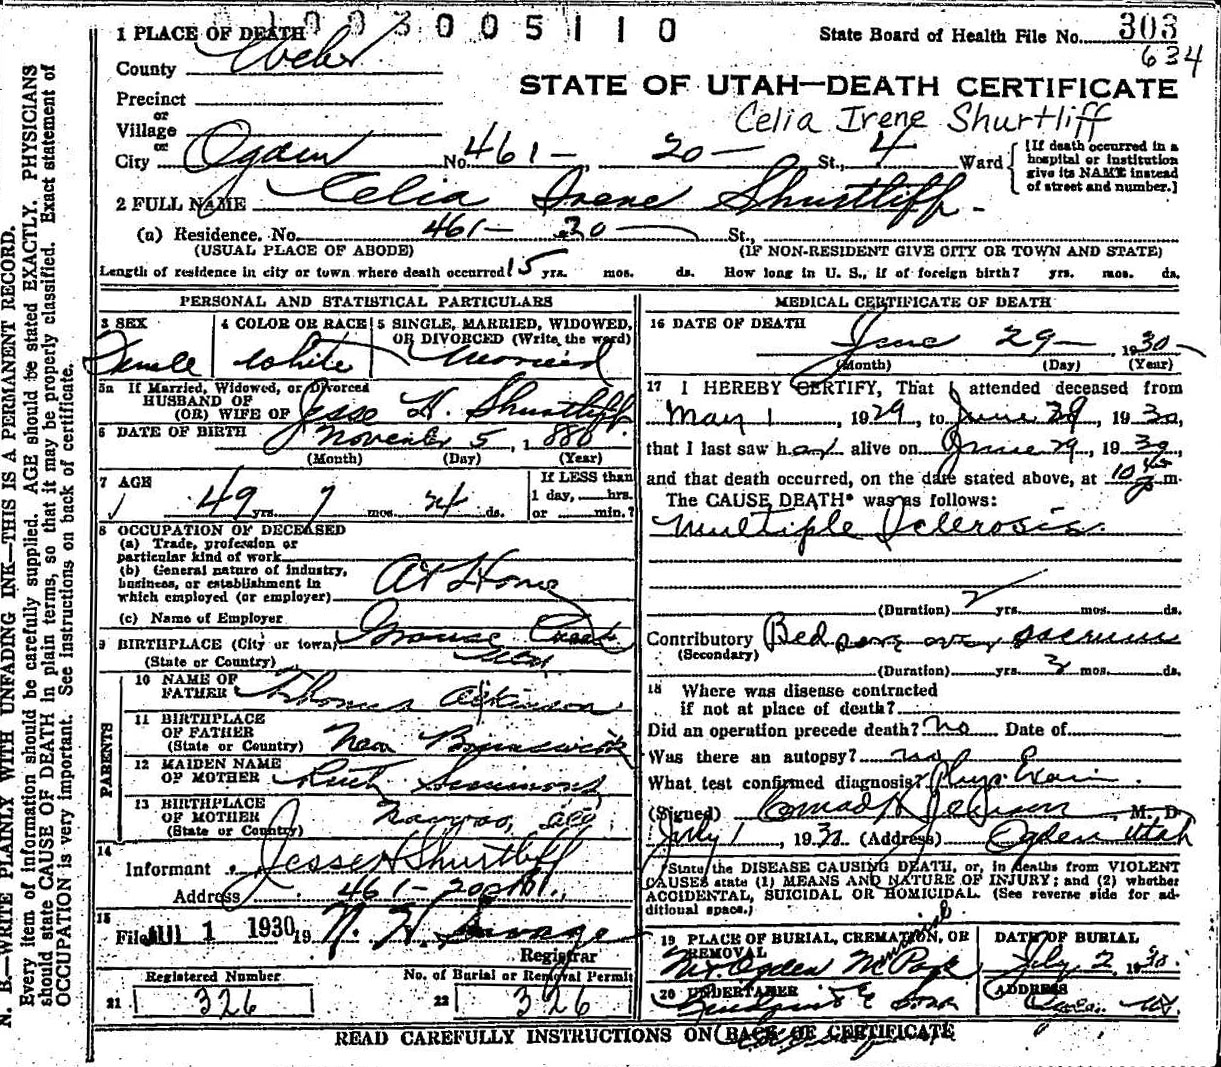 1003005110
1 PLACE OF DEATH
State Board of Health File No. 303
634
County Weber
STATE OF UTAH—DEATH CERTIFICATE
Precinct
or
Village
Celia Irene Shurtliff
or
City Ogden No. 461- 20- St., 4 Ward
[If death occurred in a hospital or institution give its NAME instead of street and number.]
2 FULL NAME Celia Irene Shurtliff
(a) Residence. No. 461- 20 St.,
(USUAL PLACE OF ABODE) (IF NON-RESIDENT GIVE CITY OR TOWN AND STATE)
Length of residence in city or town where death occurred 15 yrs. mos. ds. How long in U. S., if of foreign birth? yrs. mos. ds.
PERSONAL AND STATISTICAL PARTICULARS
3 SEX Female
4 COLOR OR RACE White
5 SINGLE, MARRIED, WIDOWED, OR DIVORCED (Write the word) Married
5a If Married, Widowed, or Divorced
HUSBAND OF
(OR) WIFE OF Jesse H. Shurtliff
6 DATE OF BIRTH November 5, 1880
(Month) (Day) (Year)
7 AGE 49 yrs. 7 mos. 24 ds.
If LESS than
1 day, hrs.
or min.?
8 OCCUPATION OF DECEASED
(a) Trade, profession or
particular kind of work
(b) General nature of industry,
business, or establishment in
which employed (or employer) At Home
(c) Name of Employer
9 BIRTHPLACE (City or town) Grouse Creek
(State or Country) Utah
PARENTS
10 NAME OF
FATHER Thomas Atkinson
11 BIRTHPLACE
OF FATHER
(State or Country) New Brunswick
12 MAIDEN NAME
OF MOTHER Ruth
13 BIRTHPLACE
OF MOTHER
(State or Country)
14
Informant Jesse H Shurtliff
Address 461-20 St.,
15
Filed JUL 1 1930 19 N. H. Savage
Registrar
Registered Number No. of Burial or Removal Permit
21 326 22 326
MEDICAL CERTIFICATE OF DEATH
16 DATE OF DEATH
June 29 1930
(Month) (Day) (Year)
17 I HEREBY CERTIFY, That I attended deceased from
May 1, 1929, to June 29, 1930,
that I last saw her alive on June 29, 1930,
and that death occurred, on the date stated above, at 10 45 p m.
The CAUSE DEATH* was as follows:
Multiple Sclerosis
(Duration) 2 yrs. mos. ds.
Contributory Bed sore over sacrum
(Secondary)
(Duration) yrs. 3 mos. ds.
18 Where was disease contracted
if not at place of death?
Did an operation precede death? no Date of
Was there an autopsy? no
What test confirmed diagnosis? Phys. Exam.
(Signed) Conrad H Jenson, M. D.
July 1, 1930 (Address) Ogden Utah
*State the DISEASE CAUSING DEATH, or, in deaths from VIOLENT
CAUSES state (1) MEANS AND NATURE OF INJURY; and (2) whether
ACCIDENTAL, SUICIDAL OR HOMICIDAL. (See reverse side for ad-
ditional space.)
19 PLACE OF BURIAL, CREMATION, OR
REMOVAL
Ogden
DATE OF BURIAL
July 2 1930
20 UNDERTAKER
Lindquist & Sons
ADDRESS
Ogden Ut.
READ CAREFULLY INSTRUCTIONS ON BACK OF CERTIFICATE
N. B.—WRITE PLAINLY WITH UNFADING INK—THIS IS A PERMANENT RECORD.
Every item of information should be carefully supplied. AGE should be stated EXACTLY. PHYSICIANS
should state CAUSE OF DEATH in plain terms, so that it may be properly classified. Exact statement of
OCCUPATION is very important. See instructions on back of certificate.